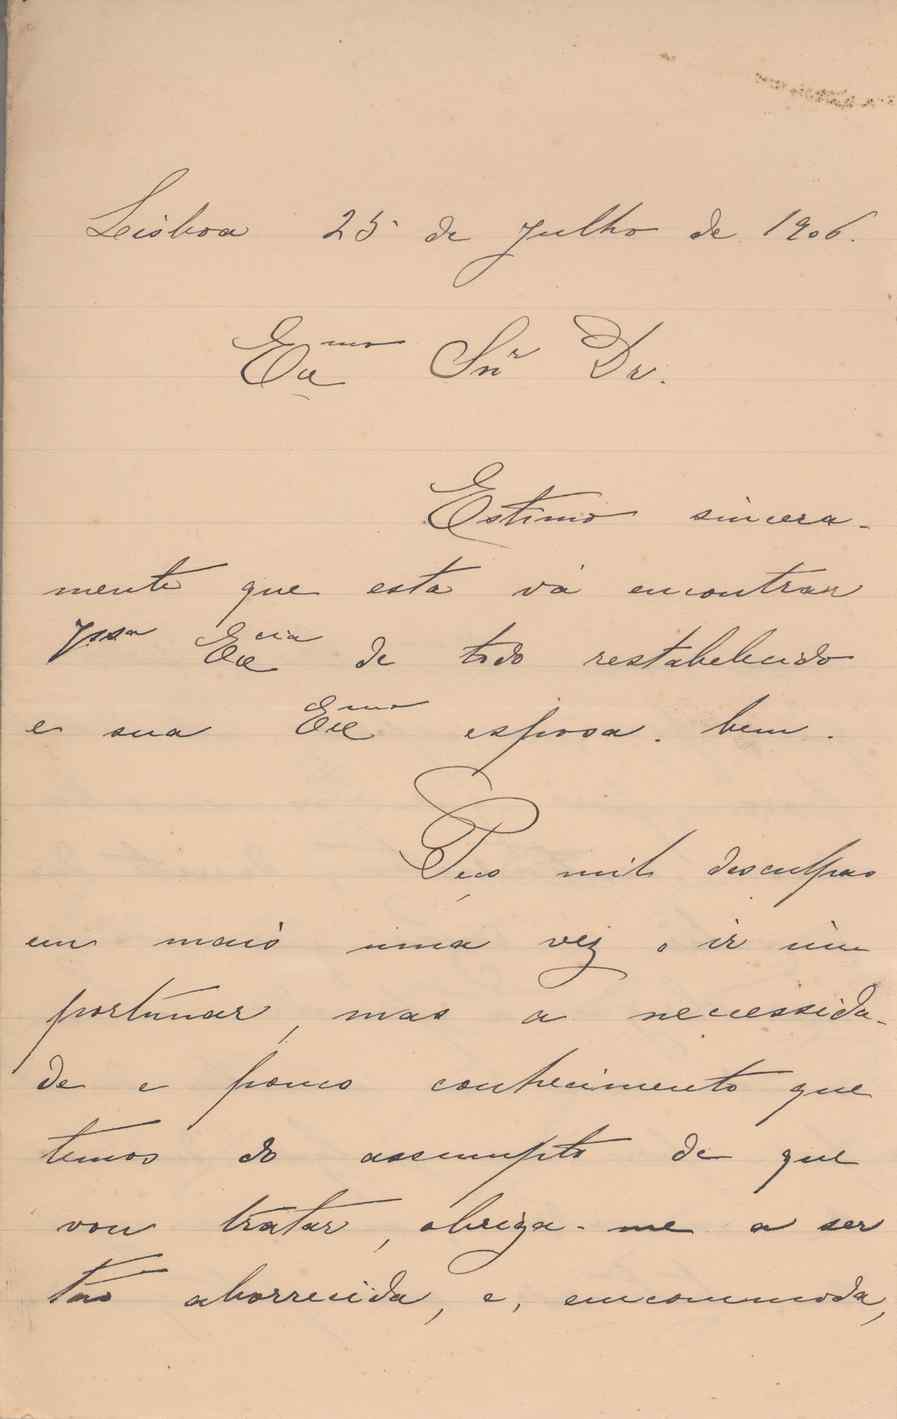 Lisboa 25 de Julho de 1906.
Exmo Snr Dr.
Estimo sincera-
mente que esta vá encontrar
Vssa Excia de todo restabelecido
e sua Exma esposa. bem.
Peço mil desculpas
em mais uma vez o ir im
portunar, mas a necessida-
de e pouco conhecimento que
temos do assumpto de que
vou tratar, obriga-me a ser
tão aborrecida, e, emcommoda,